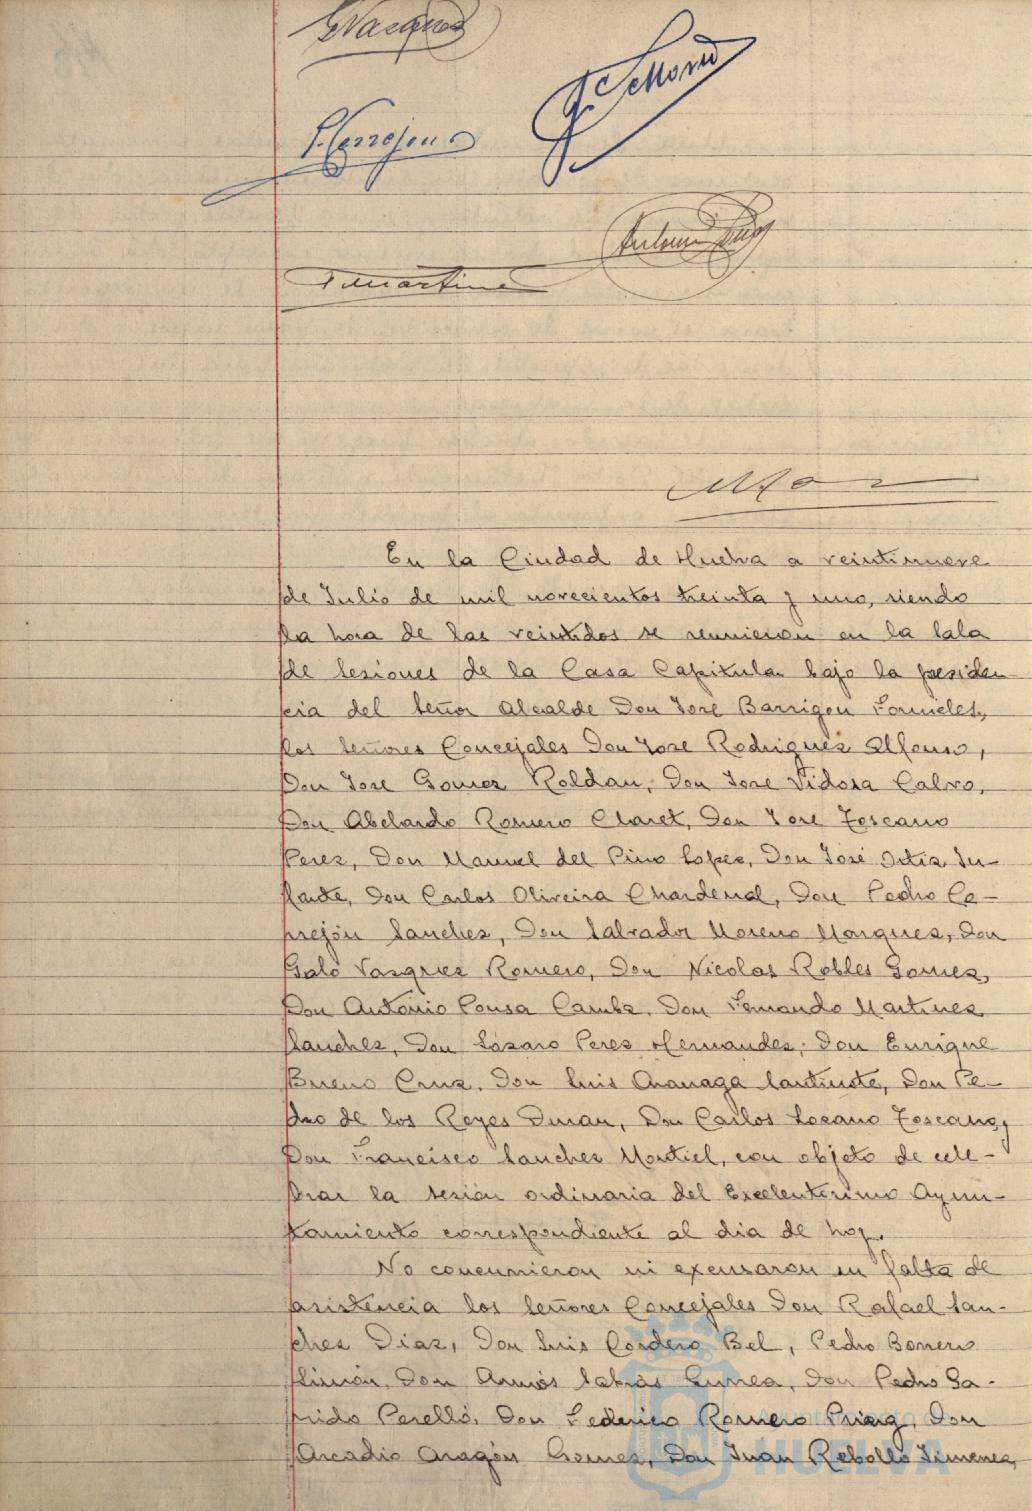 GVazquez
S. Moreno
P. Cerrejon
Antonio Pousa
F. Martinez
En la Ciudad de Huelva a veintinueve
de Julio de mil novecientos treinta y uno, siendo
la hora de las veintidos se reunieron en la Sala
de Sesiones de la Casa Capitular bajo la presiden-
cia del Señor Alcalde Don José Barrigon Fornieles,
los Señores Concejales Don Jose Rodriguez Alfonso,
Don Jose Gomez Roldan, Don Jose Vidosa Calvo,
Don Abelardo Romero Claret, Don Jose Toscano
Perez, Don Manuel del Pino Lopez, Don José Ortiz In-
fante, Don Carlos Oliveira Chardenal, Don Pedro Ce-
rrejón Sanchez, Don Salvador Moreno Marquez, Don
Galo Vazquez Romero, Don Nicolas Robles Gomez,
Don Antonio Pousa Camba, Don Fernando Martinez
Sanchez, Don Lázaro Perez Hernandez, Don Enrique
Bueno Cruz, Don Luis Aranaga Santiuste, Don Pe-
dro de los Reyes Duran, Don Carlos Lozano Toscano, y
Don Francisco Sanchez Montiel, con objeto de cele-
brar la sesión ordinaria del Excelentisimo Ayun-
tamiento correspondiente al dia de hoy.
No concurrieron ni excusaron su falta de
asistencia los Señores Concejales Don Rafael San-
chez Diaz, Don Luis Cordero Bel, Pedro Borrero
Limón, Don Amós Sabrás Gurrea, Don Pedro Ga-
rrido Perelló, Don Federico Romero Don
Arcadio Aragón Gomez, Don Juan Rebollo Jimenez,
Ayuntamiento de
HUELVA